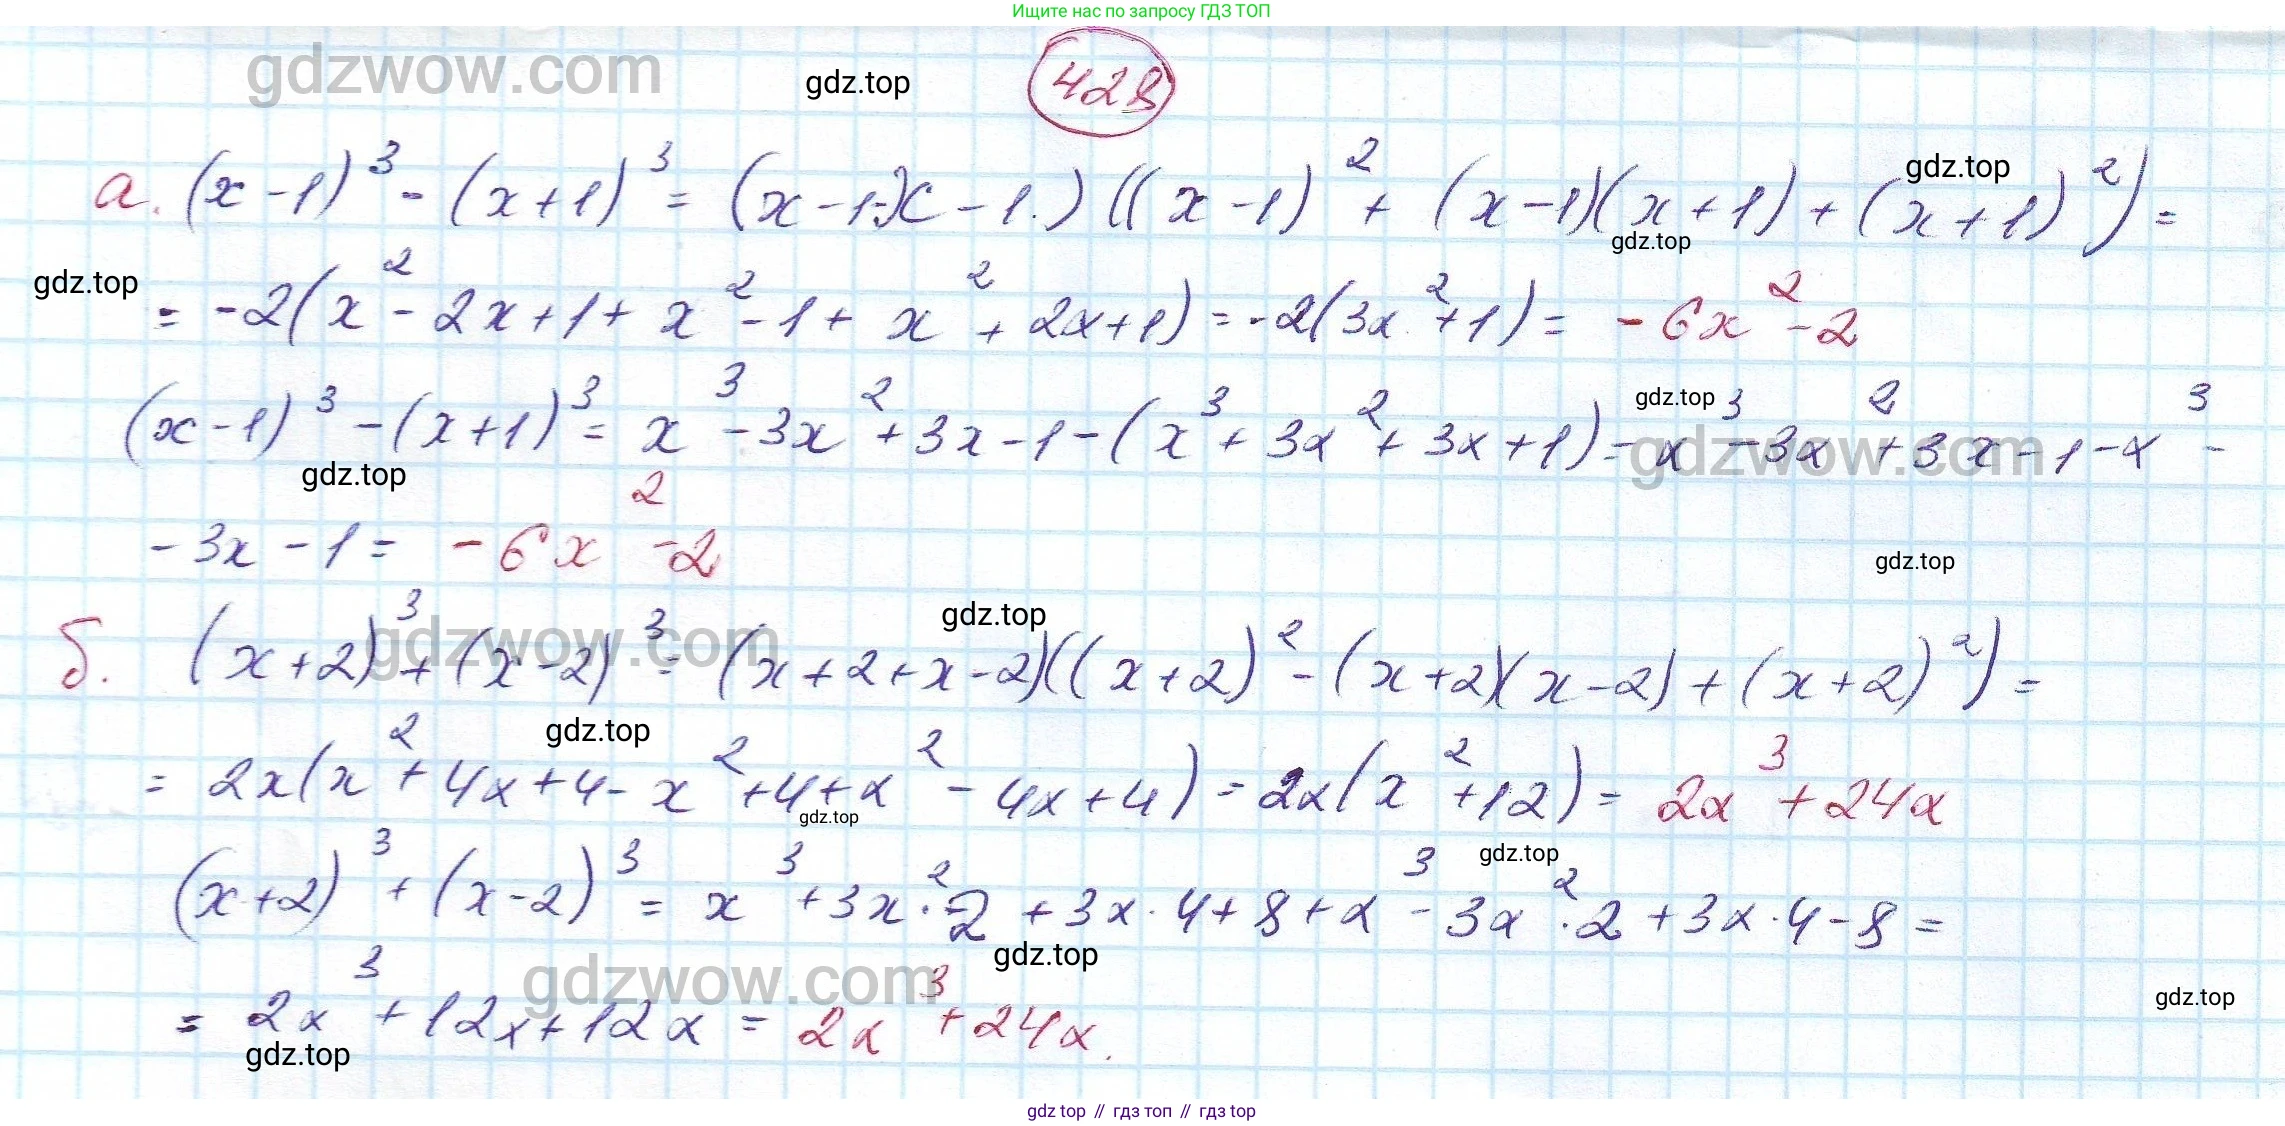 Ищите нас по запросу ГДЗ ТОП
gdzwow.com
gdz.top
428
а. (x-1)³ - (x+1)³ = (x-1-x-1.)((x-1)² + (x-1)(x+1) + (x+1)²) =
gdz.top
gdz.top
gdz.top
= -2(x² - 2x+1+x²-1+x²+2x+1) = -2(3x²+1) = -6x²-2
(x-1)³ - (x+1)³ = x³-3x²+3x-1-(x³+3x²+3x+1) = x³-3x²+3x-1-x³-
gdz.top
gdzwow.com
gdz.top
-3x-1 = -6x²-2
gdz.top
gdz.top
б. (x+2)³+(x-2)³ = (x+2+x-2)((x+2)²-(x+2)(x-2)+(x+2)²) =
gdzwow.com
gdz.top
= 2x(x²+4x+4-x²+4+x²-4x+4) = 2x(x²+12) = 2x³+24x
gdz.top
gdz.top
(x+2)³+(x-2)³ = x³+3x²·2+3x·4+8+x³-3x²·2+3x·4-8 =
gdz.top
gdzwow.com
gdz.top
= 2x³+12x+12x = 2x³+24x.
gdz.top
gdz top // гдз топ // гдз top